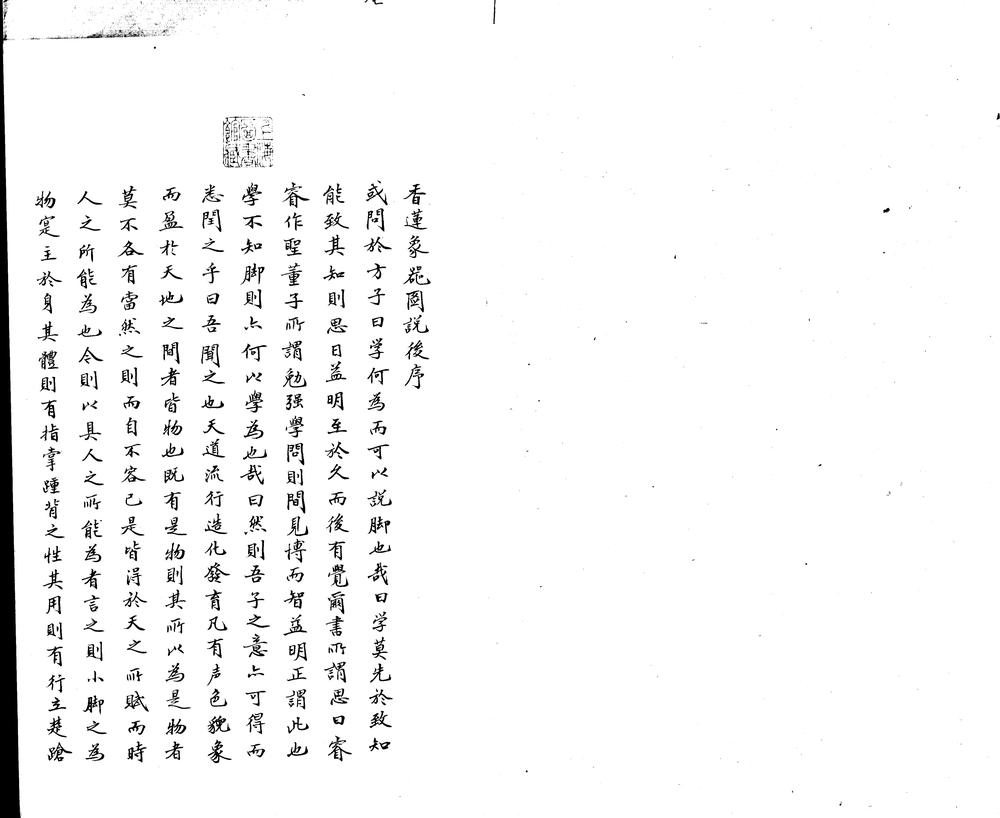 香蓮象蹤圖説後序
或問於方子曰学何為而可以説脚也哉曰学莫先於致知
能致其知則思日益明至於久而後有覺爾書所謂思曰睿
睿作聖董子所謂勉强學問則聞見博而智益明正謂此也
學不知脚則亦何以學為也哉曰然則吾子之意亦可得而
悉聞之乎曰吾聞之也天道流行造化發育凡有声色貌象
而盈扵天地之間者皆物也既有是物則其所以為是物者
莫不各有當然之則而自不容已是皆得於天之所賦而時
人之所能為也今則以具人之所能為者言之則小脚之為
物寔主於身其體則有指掌踵背之性其用則有行立楚蹌
上海圖書館藏